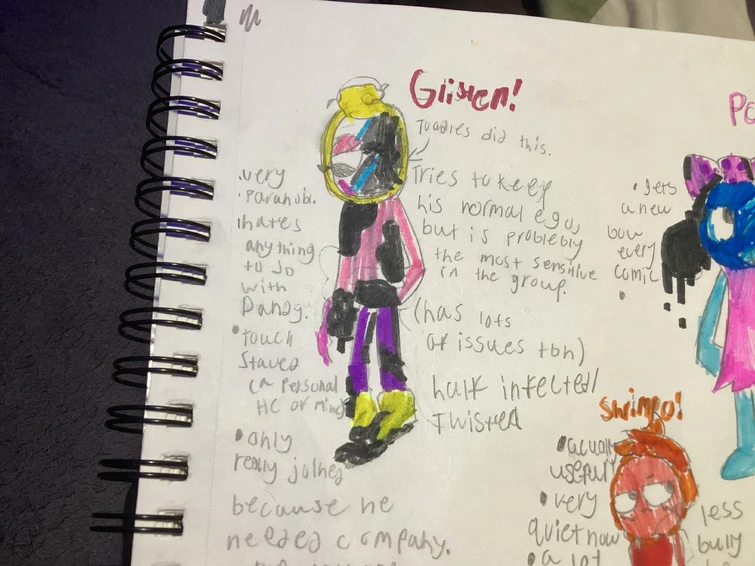 Glisten!
Toadies did this.
Tries to keep
his normal ego,
but is problebly
the most sensitive
in the group.
(has lots
of issues tbh)
half infected/
Twisted
•very
paranoid.
hates
anything
to do
with
Dandy.
•touch
staved
(a personal
HC of mine)
•only
really joined
because he
needed company.
•gets
a new
bow
every
comic
•
Shrimpo!
•acually
usefull
•very
quiet now
•a lot
less
bully